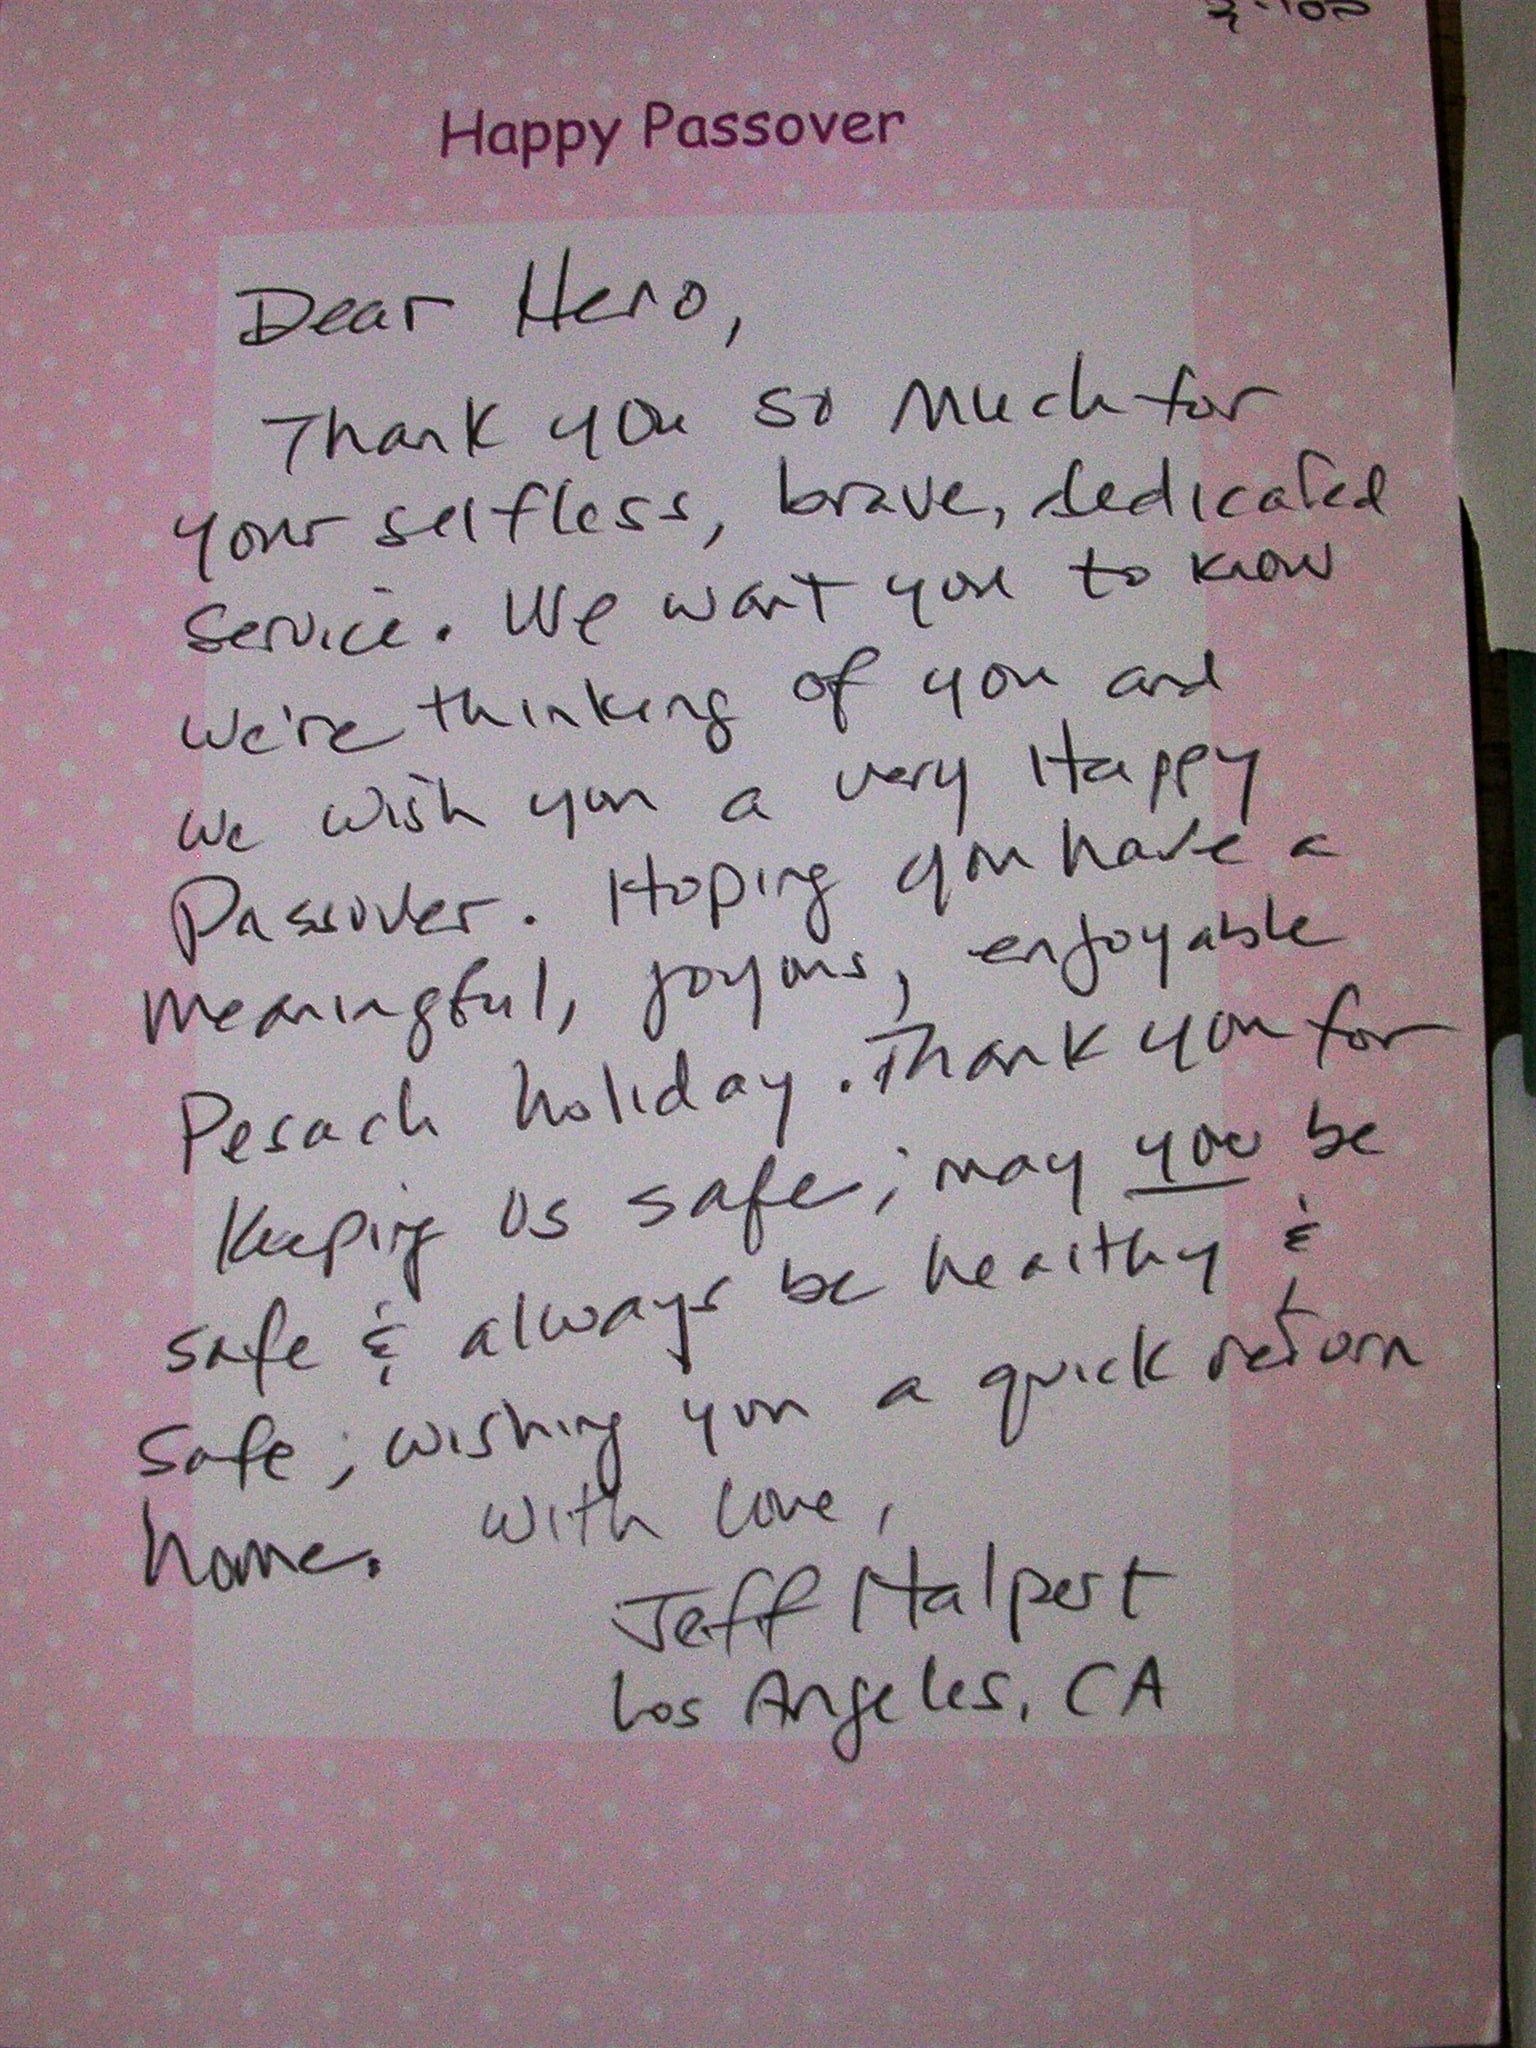 Happy Passover
Dear Hero,
Thank you so much for
your selfless, brave, dedicated
service. We want you to know
we're thinking of you and
we wish you a very Happy
Passover. Hoping you have a
meaningful, joyous, enjoyable
Pesach holiday. Thank you for
keeping us safe; may you be
safe & always be healthy &
safe; wishing you a quick return
home. With love,
Jeff Halpert
Los Angeles, CA